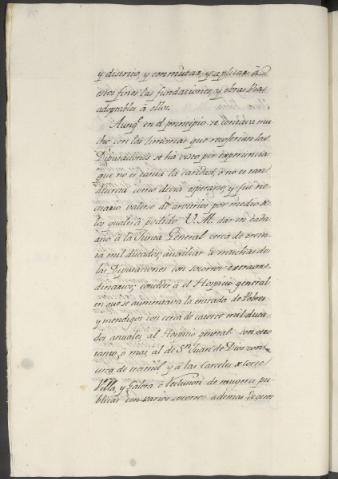 y distrito, y conmutar, y aplicar à
estos fines las fundaciones y obras Pias
adaptables à ellos.
Aunq. en el principio se contava mu
cho con las limosnas que recogerian las
Diputaciones se ha visto por experiencia
que no es tanta la caridad, ò no es tan
como devia esperarse, y fue ne
cesario valerse de arvitrios por medio de
los quales à podido V. M. dar en cada
año à la Junta General cerca de
ta mil ducados, auxiliar à muchas de
las Diputaciones con socorros extraor
dinarios; acudir à el Hospicio general
en que se aumentava la entrada de Pobres
y mendigos con cerca de catorce mil duca
dos anuales al Hospicio general con otro
tanto, ò mas, al de Sn. Juan de Dios con
cerca de mil y à las Carceles de Corte
Villa, y Galera ò reclusion de mugeres pu
blicas con varios socorros ademas de otros